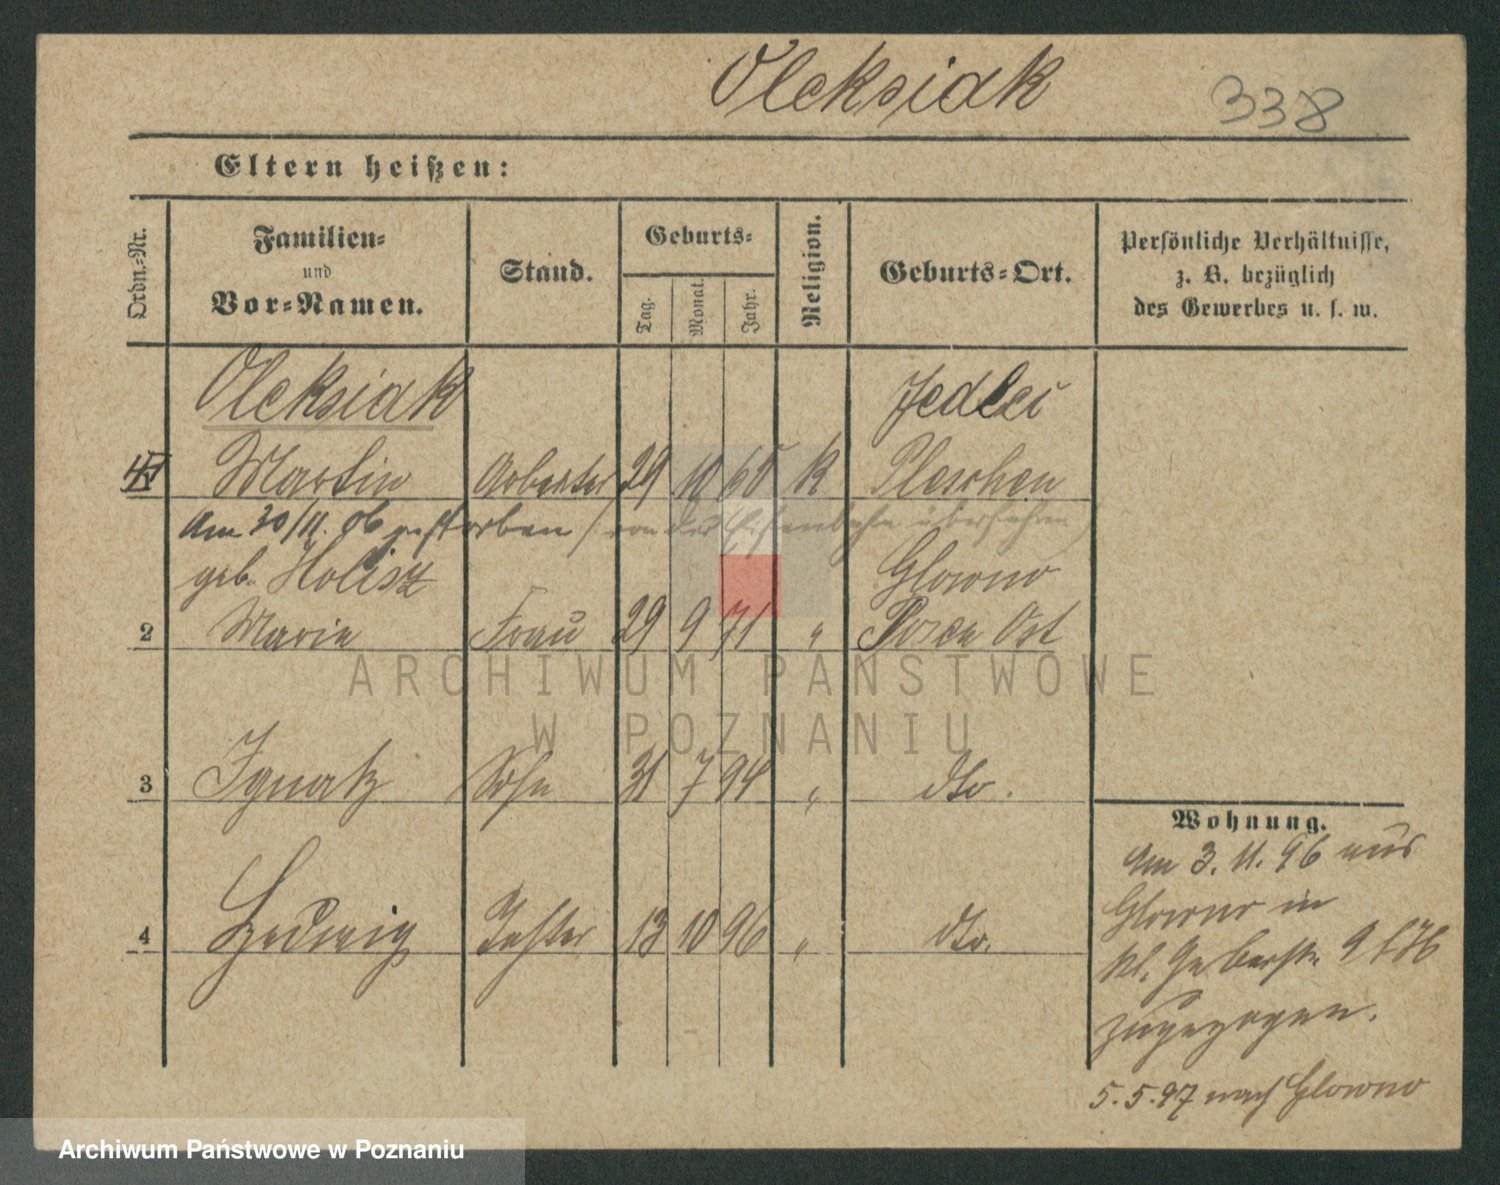 Oleksiak 338
Eltern heißen:
Ordn.-Nr. Familien- und Vor-Namen. Stand. Geburts- Tag. Monat. Jahr. Religion. Geburts-Ort. Persönliche Verhältnisse, z. B. bezüglich des Gewerbes u. s. w.
Oleksiak Jedlec
Martin Arbeiter 29 10 65 K Pleschen
Am 30/11. 96 gestorben (von der Eisenbahn überfahren)
geb. Holisz Glowno
2 Marie Frau 29 9 71 " Posen Ost
ARCHIWUM PAŃSTWOWE
W POZNANIU
3 Ignatz Sohn 31 7 94 " dto.
4 Hedwig Tochter 13 10 96 " dto.
Wohnung.
Am 3. 11. 96 aus
Glowno in
kl. Gerberstr. 9
zugezogen.
5.5.97 nach Glowno
Archiwum Państwowe w Poznaniu